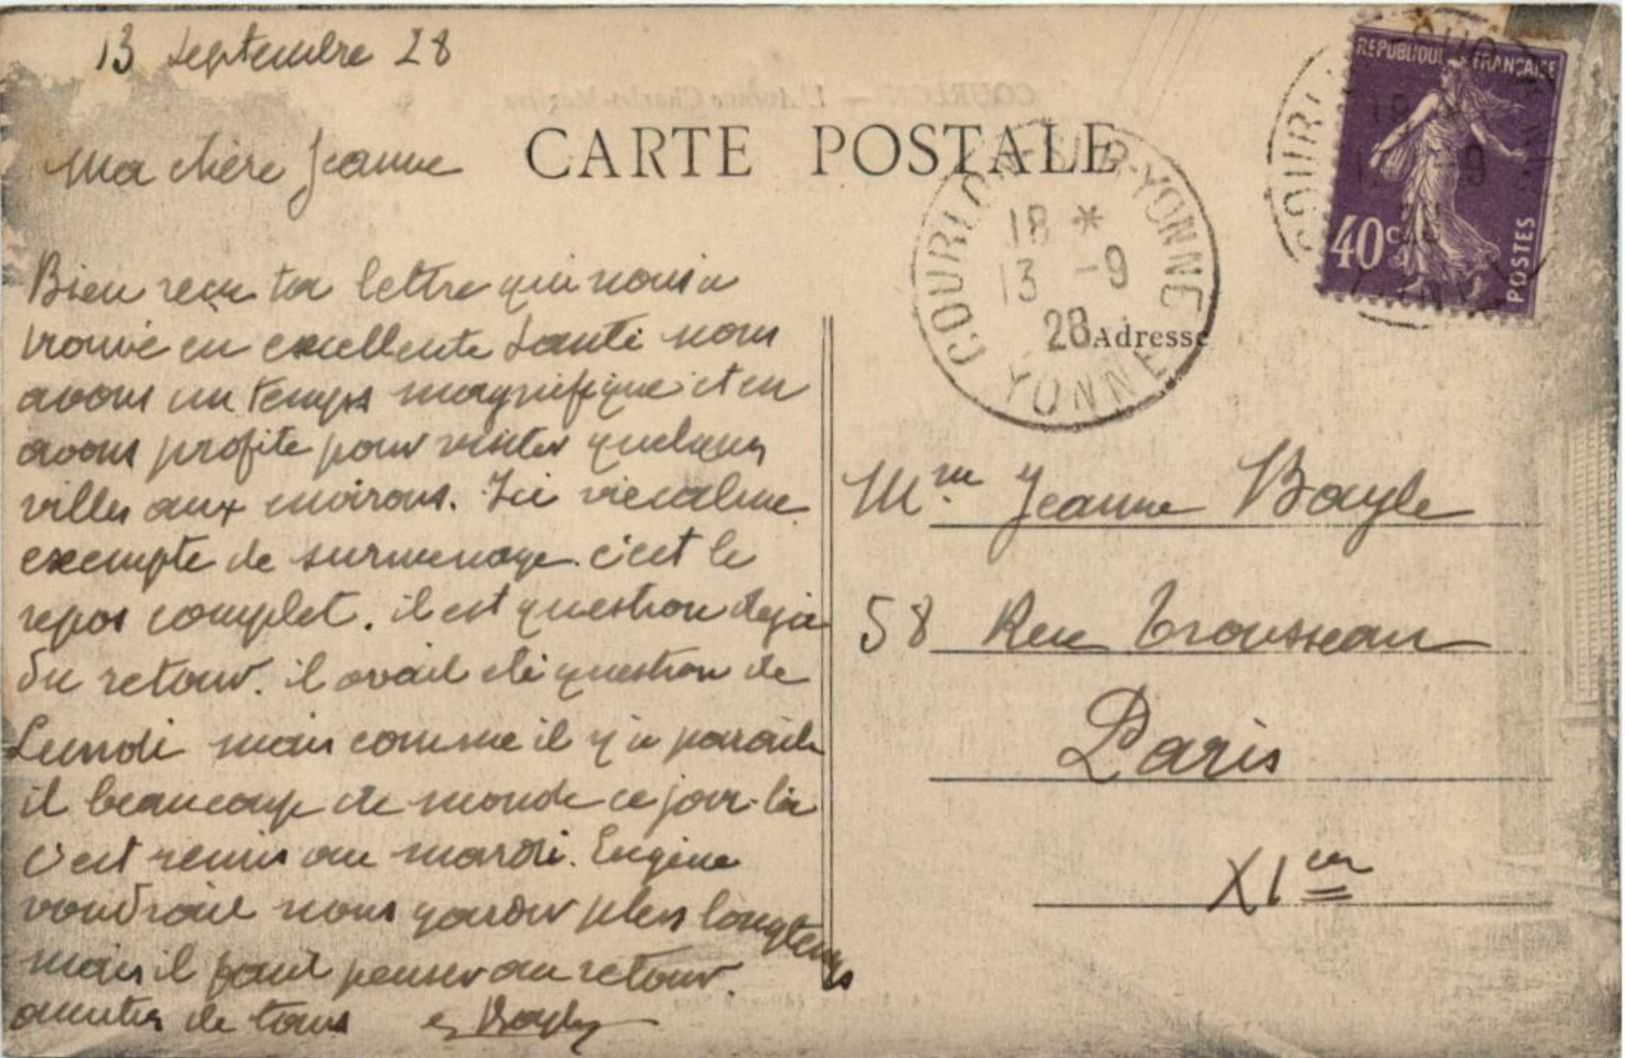 13 Septembre 28
CARTE POSTALE
Ma chère Jeanne
Bien reçu ta lettre qui nous a
trouvé en excellente santé nous
avons un temps magnifique et en
avons profite pour visiter quelques
villes aux environs. Ici vie calme
exempte de surmenage. c'est le
repos complet. il est question deja
du retour. il avait été question de
Lundi mais comme il y a parait
il beaucoup de monde ce jour-là
c'est remis au mardi. Eugène
voudrait nous garder plus longtemps
mais il faut penser au retour.
amitiés de tous
REPUBLIQUE FRANÇAISE
40c
POSTES
COURLON-SUR-YONNE
18 *
13 -9
28
YONNE
Adresse
Mme Jeanne Bayle
58 Rue Trousseau
Paris
XI